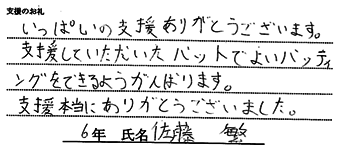 支援のお礼
いっぱいの支援ありがとうございます。
支援していただいたバットでよいバッティ
ングをできるようがんばります。
支援本当にありがとうございました。
6年 氏名 佐藤 繁